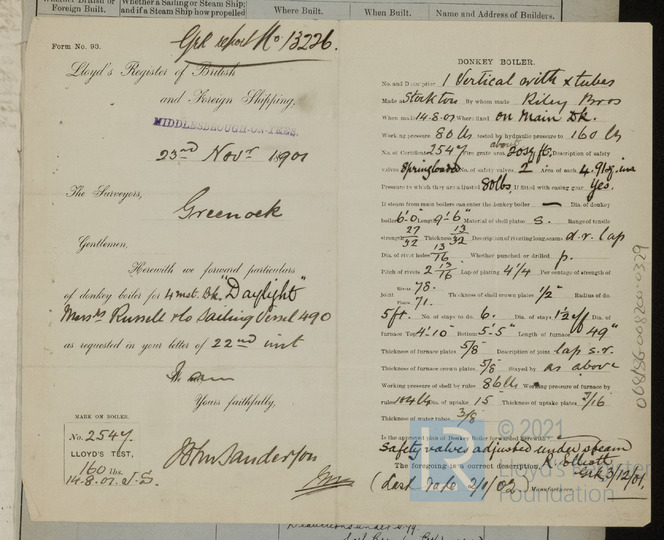 Whether British or Foreign Built.
Whether a Sailing or Steam Ship; and if a Steam Ship how propelled
Where Built.
When Built.
Name and Address of Builders.
Form No. 93.
Grk report No 13226.
Lloyd's Register of British
and Foreign Shipping,
MIDDLESBROUGH-ON-TEES.
23rd Novr 1901
The Surveyors,
Greenock
Gentlemen,
Herewith we forward particulars
of donkey boiler for 4 mst. Bk. "Daylight"
Messrs Russell & Co Sailing Vessel 490
as requested in your letter of 22nd inst
Yours faithfully,
John Sanderson
MARK ON BOILER.
No. 2547.
LLOYD'S TEST,
160 lbs.
14.8.01. J.S.
DONKEY BOILER.
No. and Description 1 Vertical with x tubes
Made at Stockton By whom made Riley Bros
When made 14.8.01 Where fixed on main Dk.
Working pressure 80 lbs tested by hydraulic pressure to 160 lbs
No. of Certificate 2547 Fire grate area about 20 sq ft. Description of safety
valves Spring loaded No. of safety valves 2 Area of each 4.91 sq. ins
Pressure to which they are adjusted 80 lbs. If fitted with easing gear Yes.
If steam from main boilers can enter the donkey boiler — Dia. of donkey
boiler 6'.0" Length 9'.6" Material of shell plates S. Range of tensile
strength 27/32 Thickness 13/32 Description of riveting long. seams d.r. lap
Dia. of rivet holes 13/16 Whether punched or drilled p.
Pitch of rivets 2 13/16 Lap of plating 4 1/4 Per centage of strength of
joint Rivets 78. Plates 71. Thickness of shell crown plates 1/2" Radius of do.
5 ft. No. of stays to do. 6. Dia. of stays Dia. of
furnace Top 4'.10" Bottom 5'.5" Length of furnace 49"
Thickness of furnace plates 5/8 Description of joint lap s.r.
Thickness of furnace crown plates 5/8 Stayed by as above
Working pressure of shell by rules 86 lbs Working pressure of furnace by
rules 104 lbs Dia. of uptake 15 Thickness of uptake plates 7/16
Thickness of water tubes 3/8
Is the approved plan of Donkey Boiler forwarded herewith?
Safety valves adjusted under steam
The foregoing is a correct description, R. Elliott
Grk 3/12/01.
(Last date 2/1/02) Manufacturer.
© 2021
Lloyd's Register
Foundation
LR